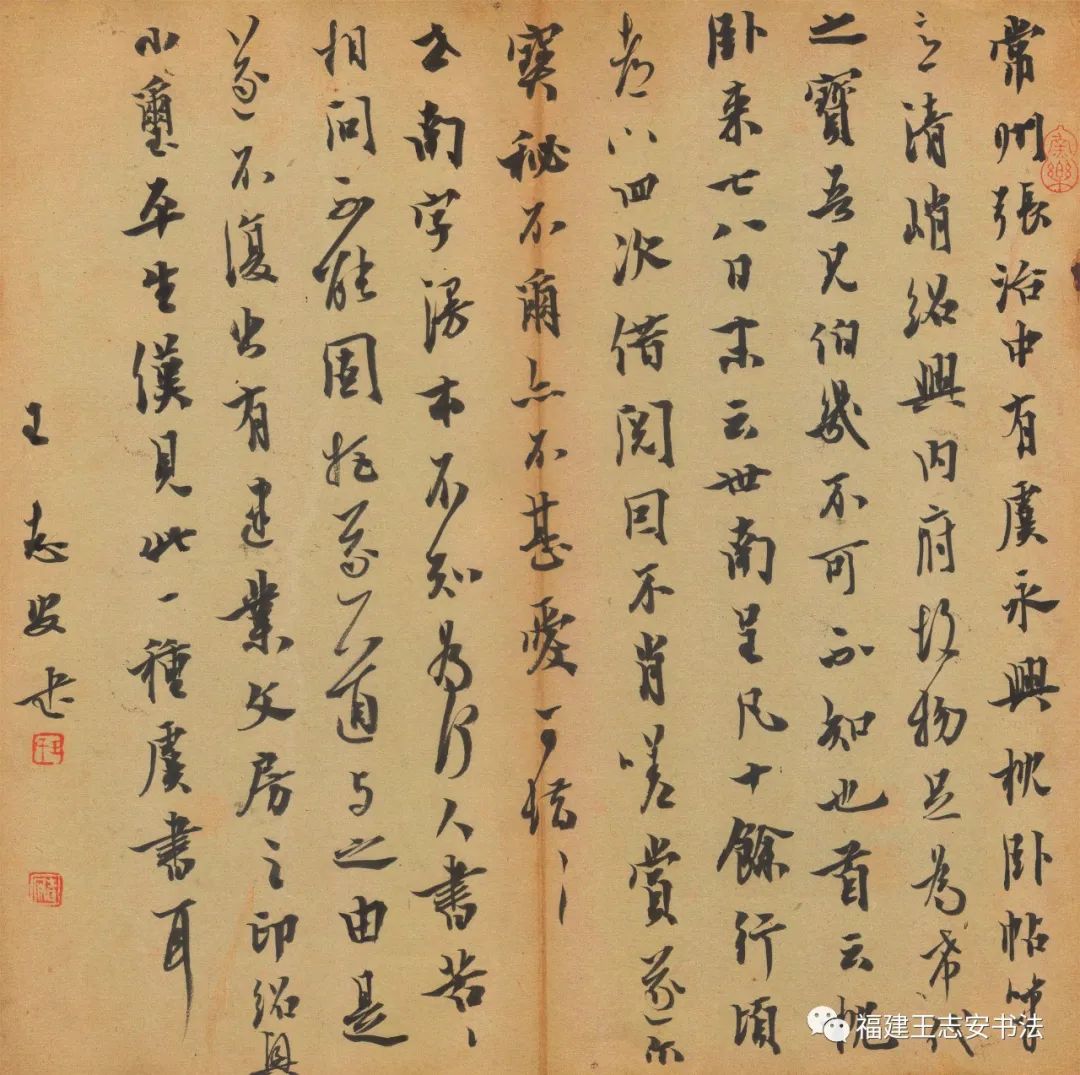 常州張治中有虞永興枕卧帖筆
意清峭紹興内府故物足為希代
之寶吾兄伯幾不可不知也首云枕
卧来七八日末云世南呈凡十餘行頃
者八四次借閲因不肖嗟賞遂不
寶秘不爾亦不甚愛可惜〻〻
世南字漫本不知為何人書若〻
相問不能固拒遂以道与之由是
遂不復出有建業文房之印紹興
小璽平生僅見此一種虞書耳
王志安
福建王志安书法